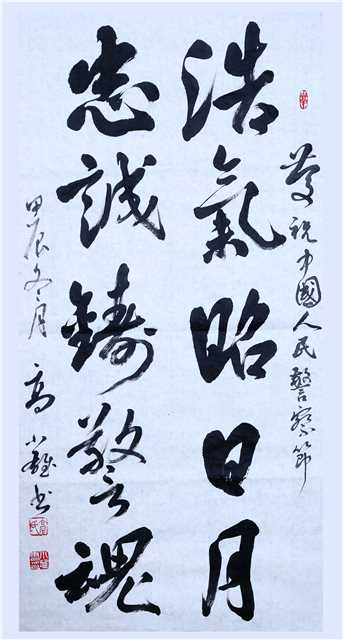 慶祝中國人民警察節
浩氣昭日月
忠誠鑄警魂
甲辰冬月 高小 书